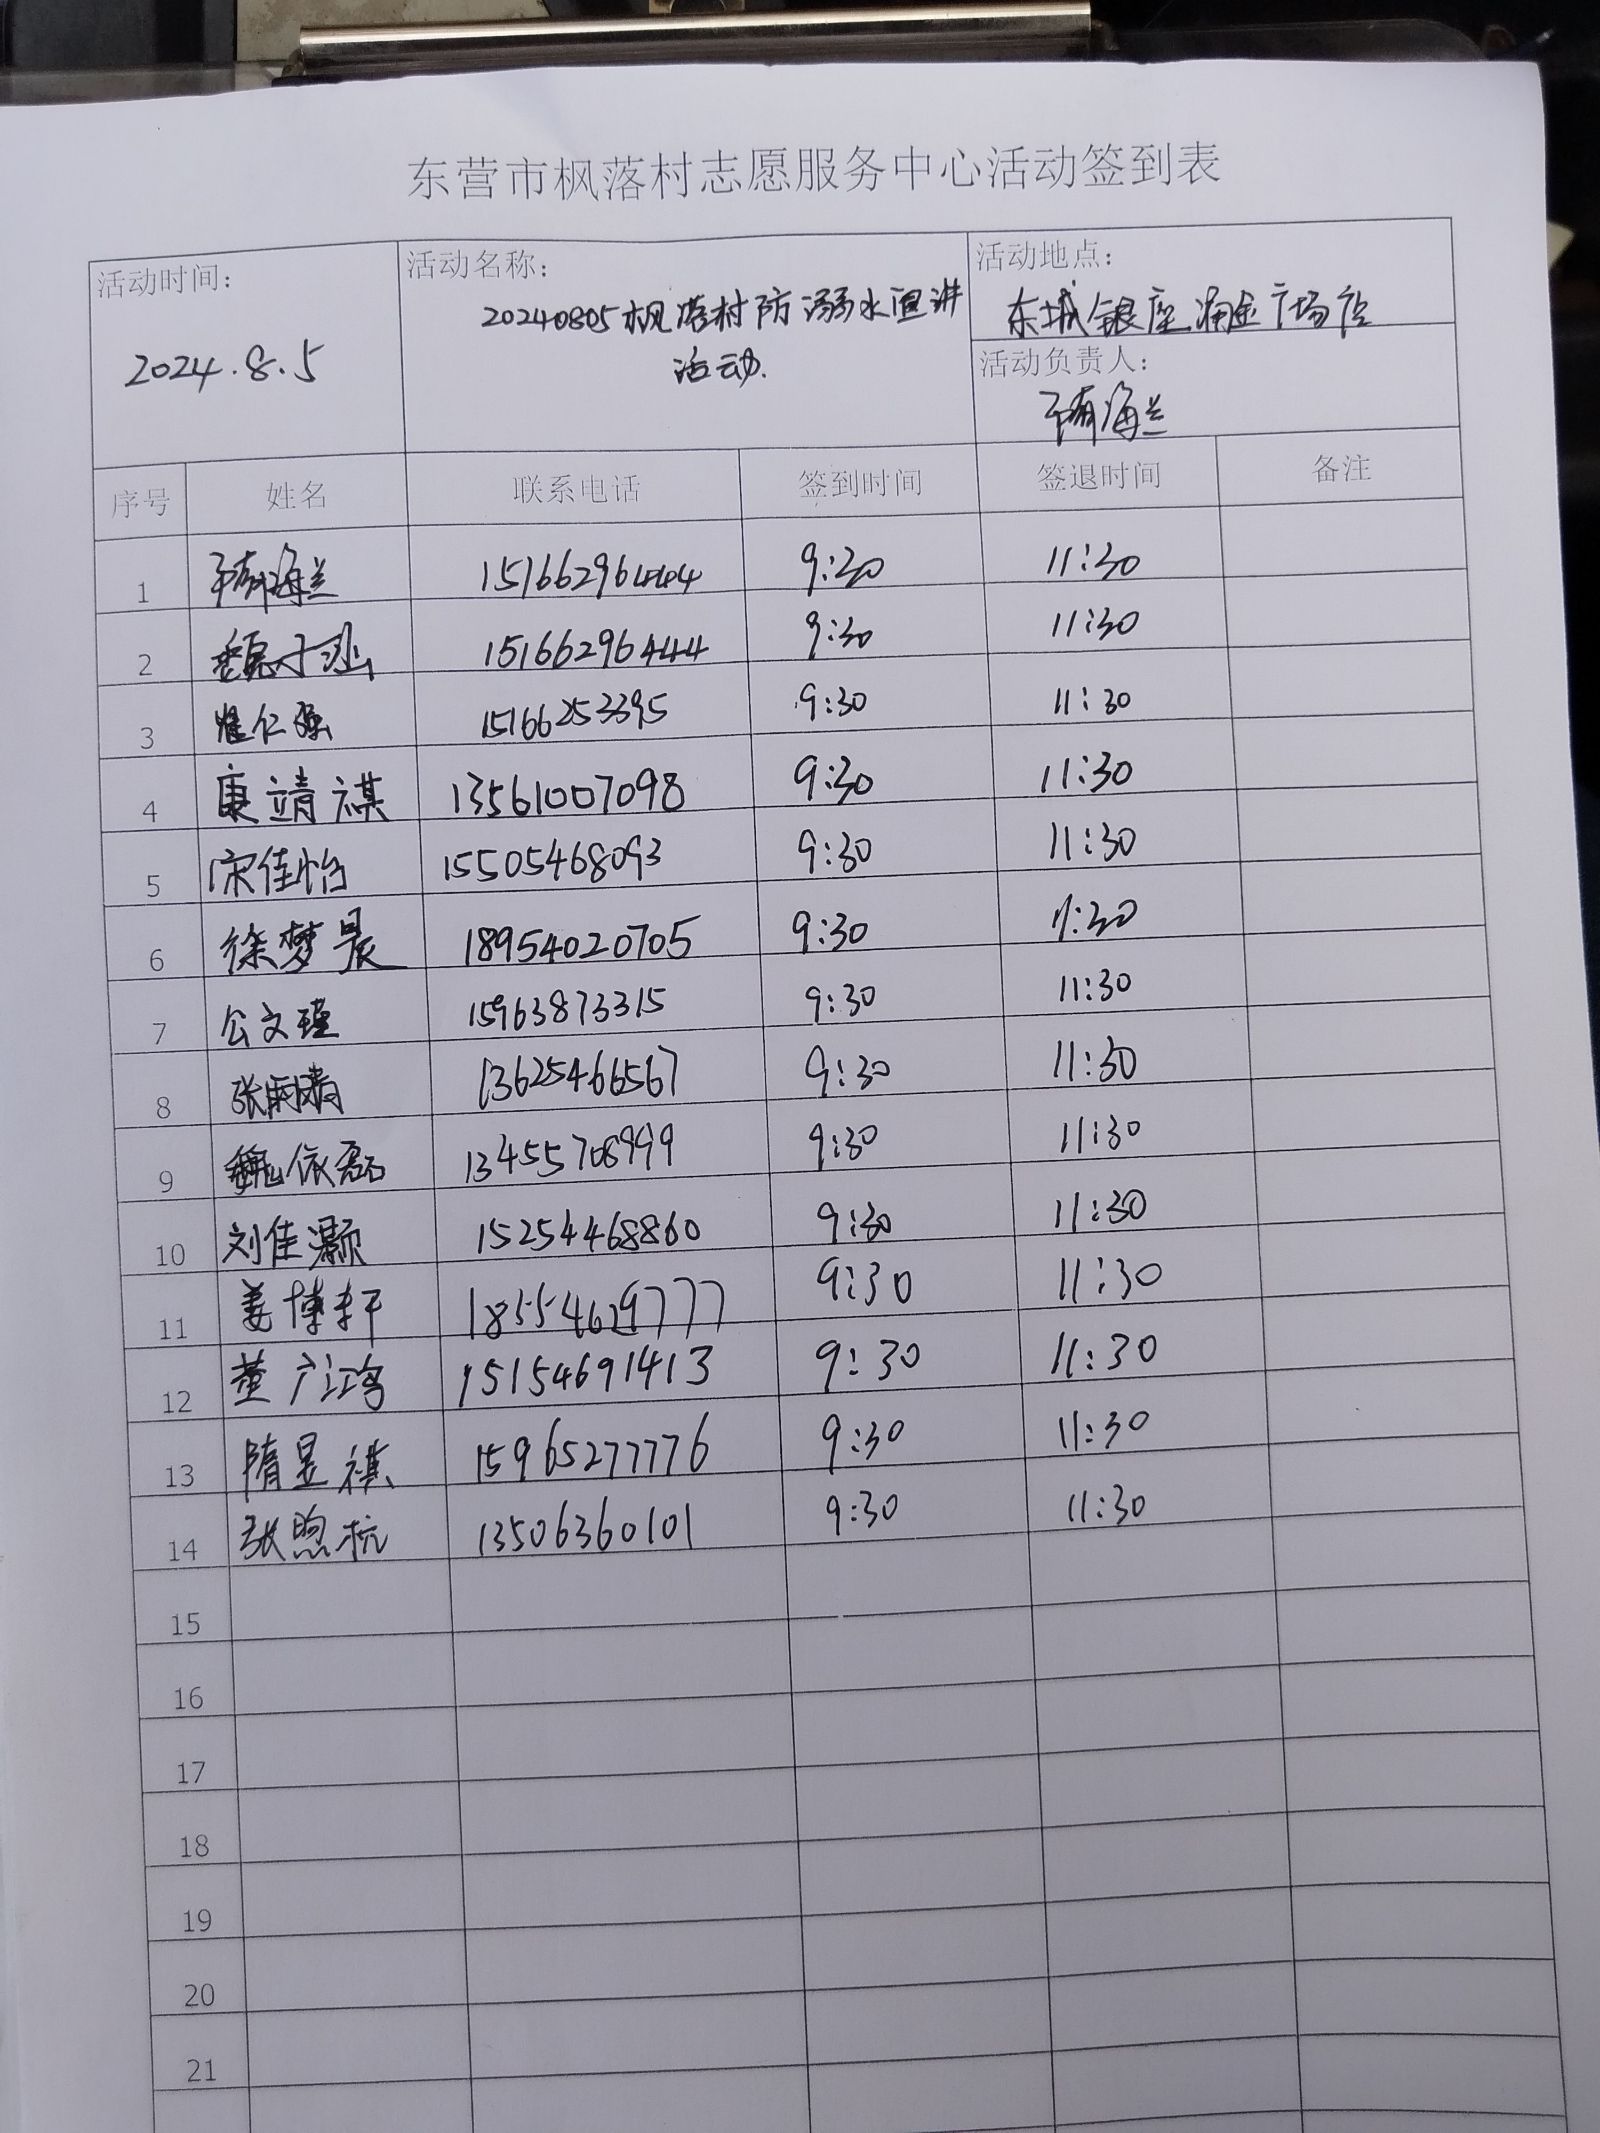 东营市枫落村志愿服务中心活动签到表
活动时间: 2024.8.5
活动名称: 20240805枫落村防溺水宣讲
活动.
活动地点: 东城银座润金广场店
活动负责人: 海兰
序号 姓名 联系电话 签到时间 签退时间 备注
1 海兰 15166296444 9:30 11:30
2 魏子 15166296444 9:30 11:30
3 仁强 15166253395 9:30 11:30
4 康靖祺 13561007098 9:30 11:30
5 宋佳怡 15505468093 9:30 11:30
6 徐梦晨 18954020705 9:30 11:30
7 公文瑾 15963873315 9:30 11:30
8 张雨晴 13625466567 9:30 11:30
9 魏依磊 13455708999 9:30 11:30
10 刘佳灏 15254468860 9:30 11:30
11 姜博轩 18554629777 9:30 11:30
12 董广鸿 15154691413 9:30 11:30
13 隋昱祺 15965277776 9:30 11:30
14 张煦杭 13506360101 9:30 11:30
15
16
17
18
19
20
21